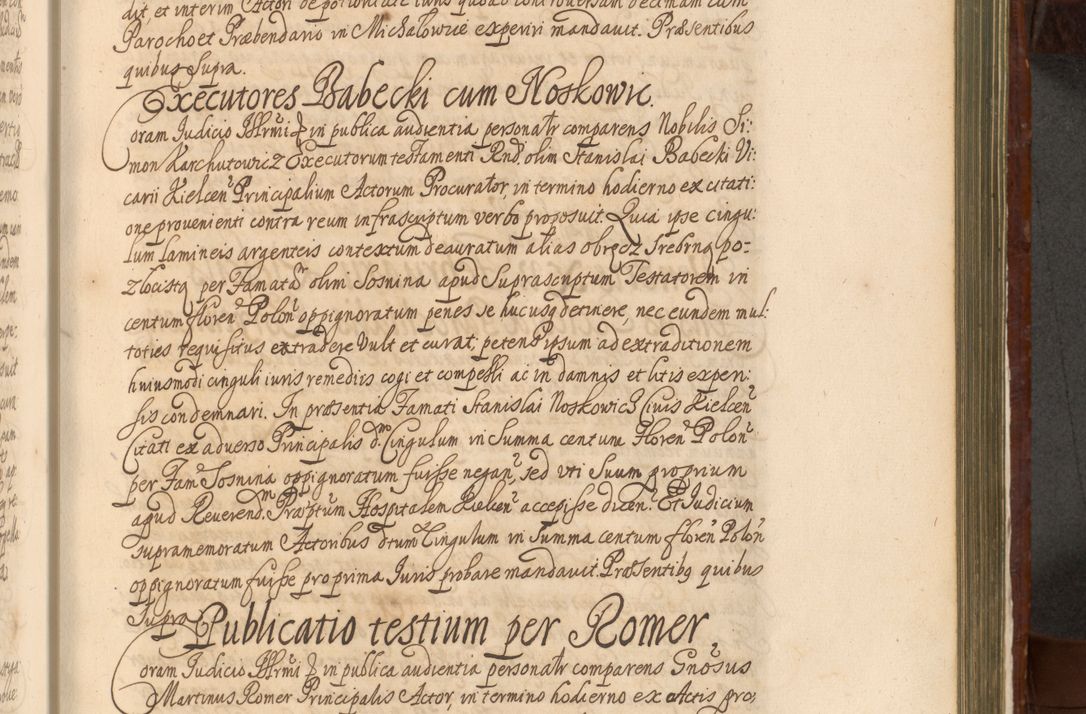 dit, et interim Actori de potioritate iuris quoad controversam decimam cum
Parocho et Præbendario in Michałowice experiri mandavit. Præsentibus
quibus supra.
Executores Babecki cum Noskowic.
Coram Iudicio Illrmi & in publica audientia personalr comparens Nobilis Si:
mon Karchutowicz Executorum testamenti Rnd. olim Stanislai Babecki Vi:
carii Kielcen Principalium Actorum Procurator, in termino hodierno ex citati:
one provenienti contra reum infrascriptum verbo proposuit. Quia ipse cingu:
lum lamineis argenteis contextum deauratum alias obręcz srebrną po:
złocistą per Famatā olim Sosnina apud suprascriptum Testatorem in
centum floren Polon oppignoratum penes se hucusq detinere, nec eundem mul:
toties requisitus extradere vult et curat, petens ipsum ad extraditionem
huiusmodi cinguli iuris remediis cogi et compelli ac in damnis et litis expen:
sis condemnari. In præsentia Famati Stanislai Noskowicz Civis Kielcen
Citati ex adverso Principalis d.mo Cingulum in summa centum Floren Polon
per Fam Sosnina oppignoratum fuisse negan, sed uti suum proprium
apud Reverend.m Præptum Hospitalem Kielcen accepisse dicen. Et Iudicium
supramemoratum Actoribus dtum Cingulum in summa centum floren Polon
oppignoratum fuisse pro prima Iuris probare mandavit. Præsentibq quibus
supra.
Publicatio testium per Romer.
Coram Iudicio Illrmi & in publica audientia personalr comparens Gnosus
Martinus Romer Principalis Actor, in termino hodierno ex Actis pro,